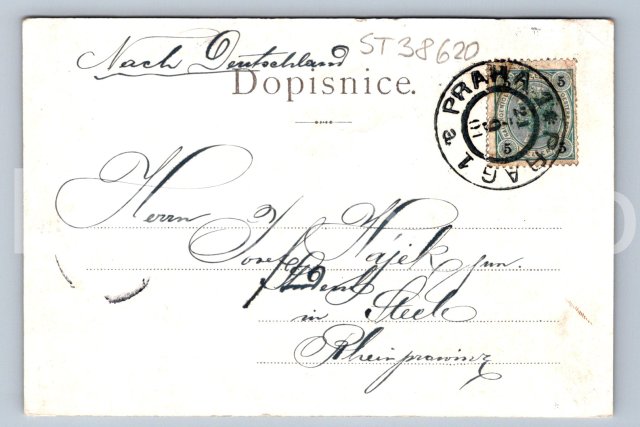 Nach Deutschland
ST38620
Dopisnice.
PRAHA 1* PRAG 1 a
5
5 5
Herrn
Josef Hájek jun.
in Steele
Rheinprovinz